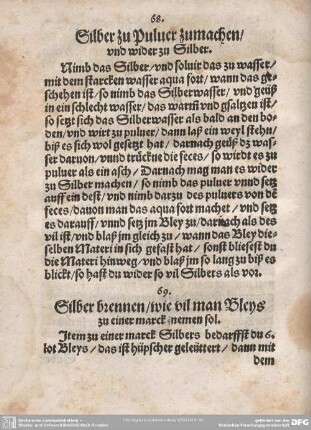 68.
Silber zu Puluer zumachen/
vnd wider zu Silber.
Nimb das Silber/ vnd soluir das zu wasser/
mit dem starcken wasser aqua fort/ wann das ge-
schehen ist/ so nimb das Silberwasser/ vnd geüß
in ein schlecht wasser/ das warm vnd gsaltzen ist/
so setzt sich das Silberwasser als bald an den bo-
den/ vnd wirt zu puluer/ dann laß ein weyl stehn/
biß es sich wol gesetzt hat/ darnach geüß dz was-
ser daruon/ vnnd trückne die feces/ so wirdt es zu
puluer als ein asch/ Darnach mag man es wider
zu Silber machen/ so nimb das puluer vnnd setz
auff ein dest/ vnd nimb darzu des puluers von dē
feces/ dauon man das aqua fort machet/ vnd setz
es darauff/ vnnd setz jm Bley zu/ darnach als des
vil ist/ vnd blaß jm gleich zu/ wann das Bley die-
selben Materi in sich gefast hat/ sonst bliefest du
die Materi hinweg/ vnd blaß jm so lang zu biß es
blickt/ so hast du wider so vil Silbers als vor.
69.
Silber brennen/ wie vil man Bleys
zu einer marck nemen sol.
Item zu einer marck Silbers bedarffst du 6.
lot Bleys/ das ist hüpscher geleüttert/ dann mit
dem